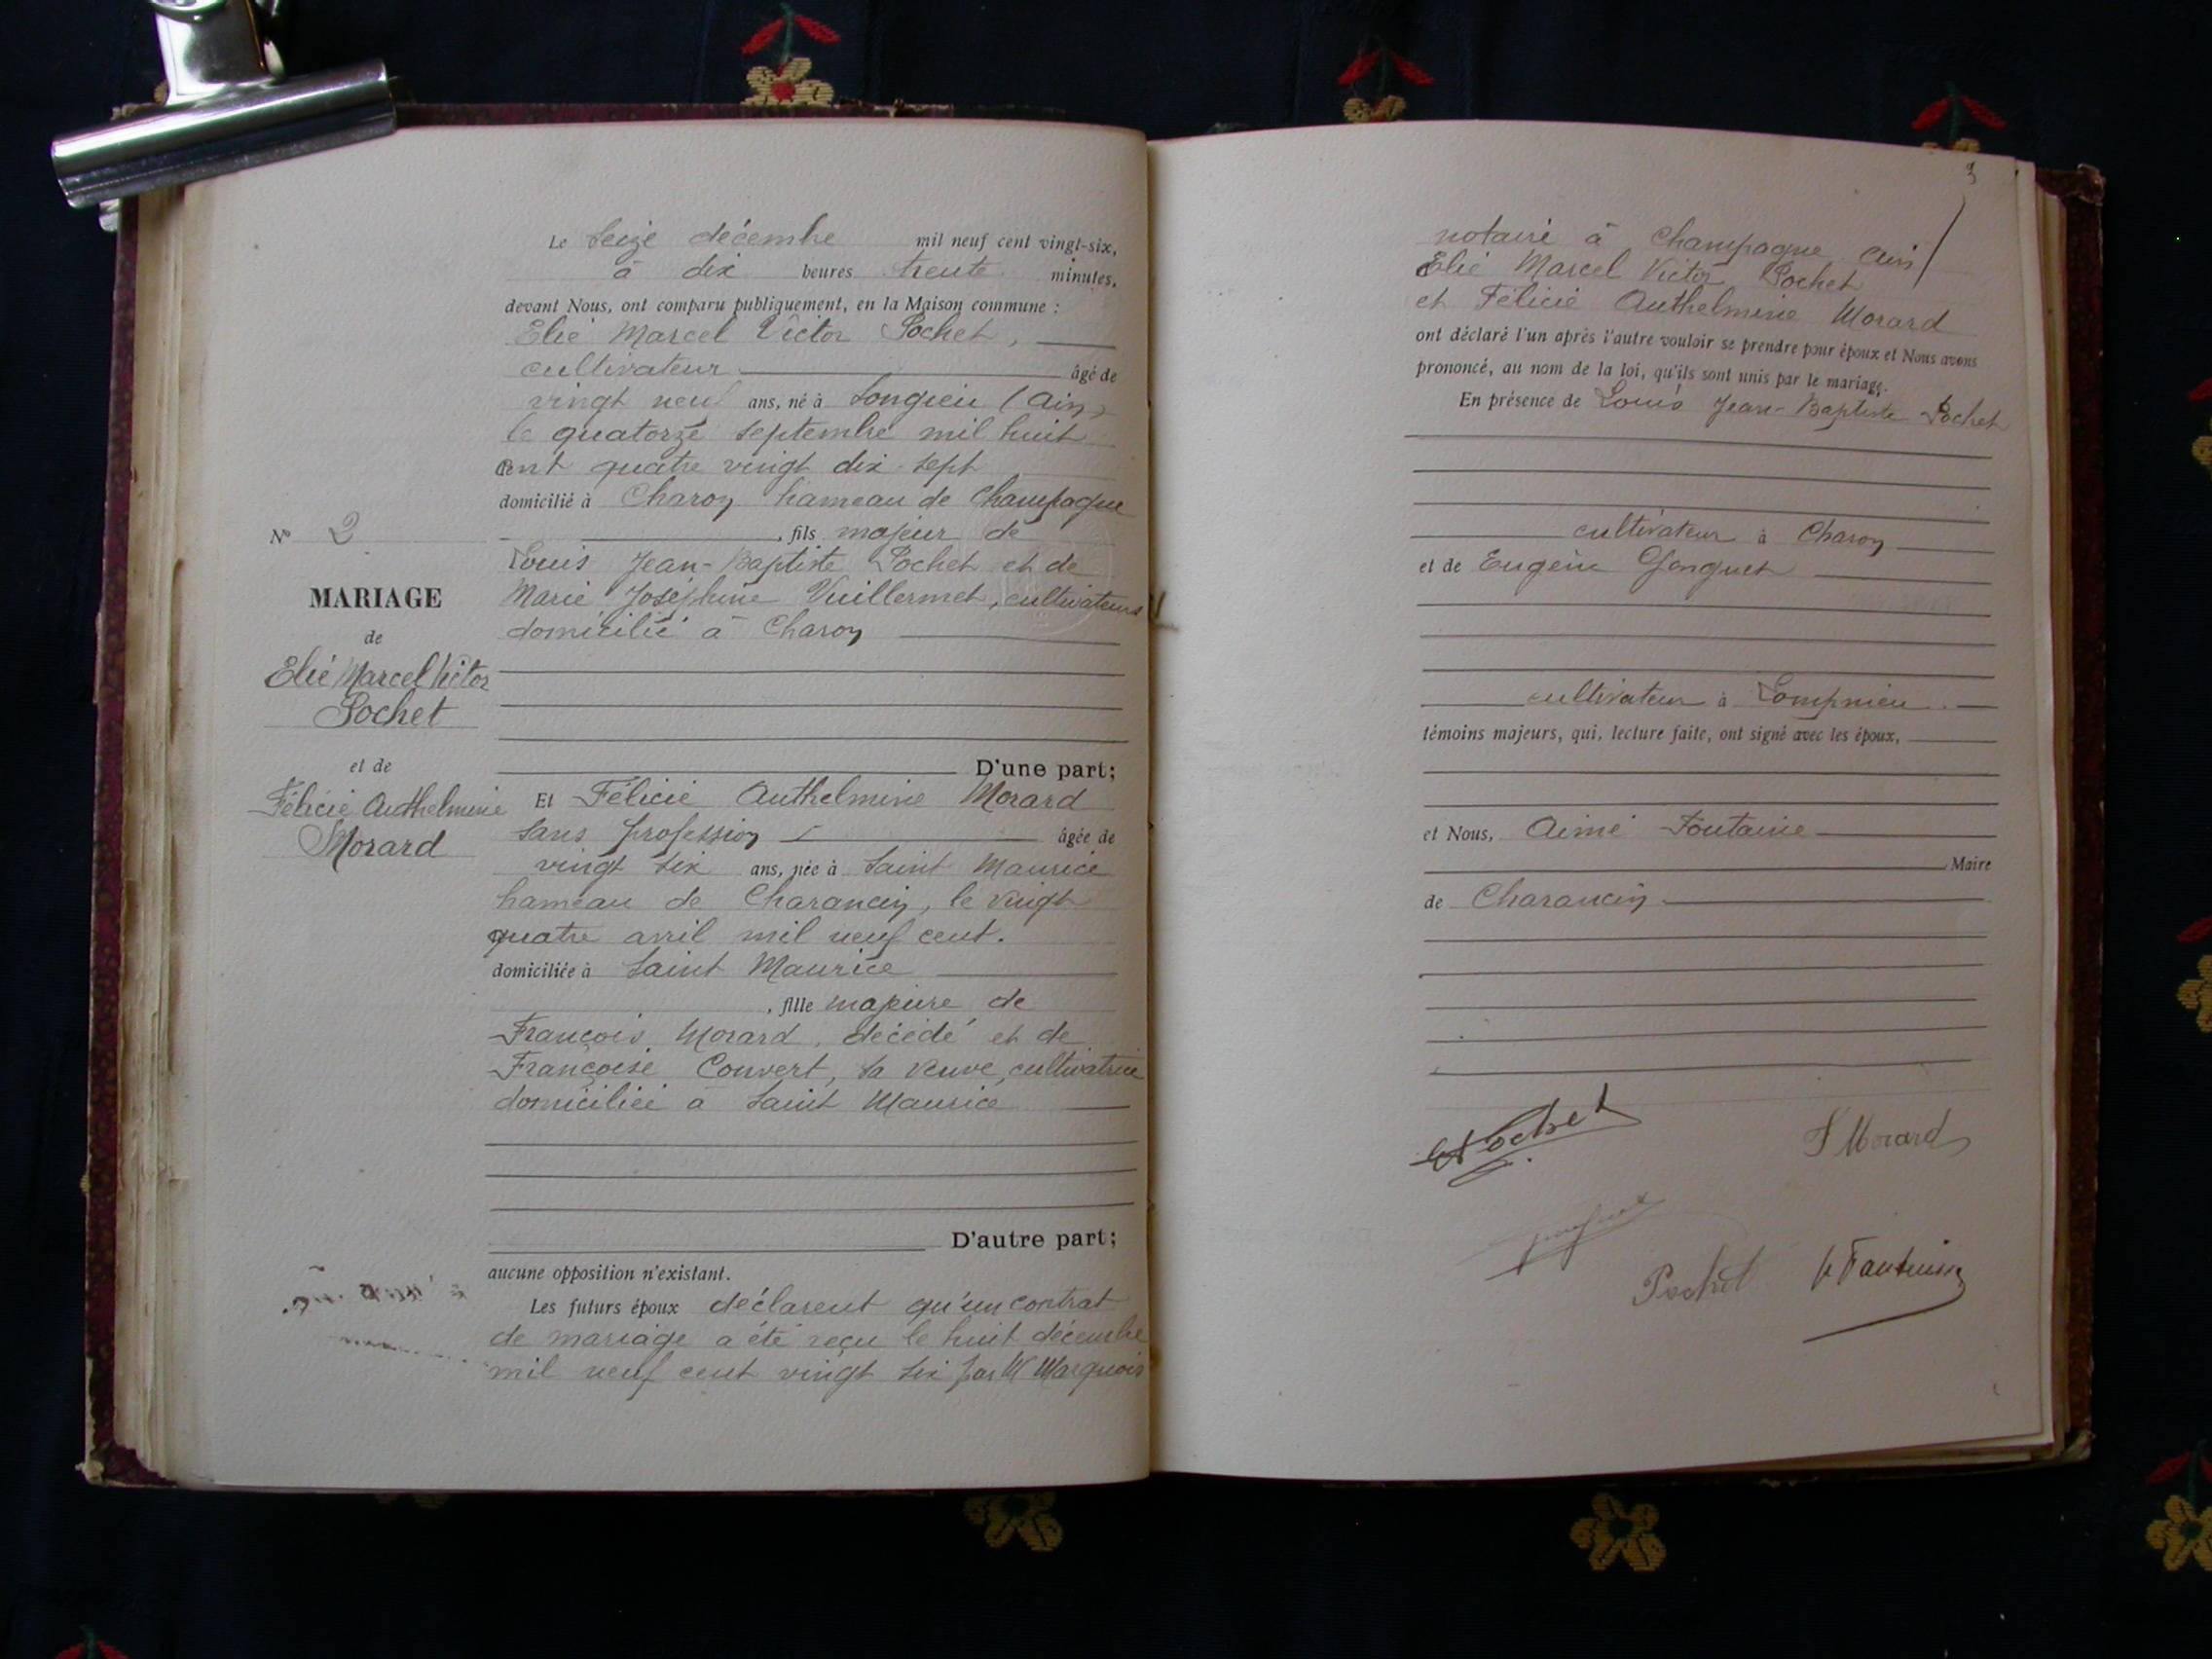 Le Seize décembre mil neuf cent vingt-six,
à dix heures trente minutes,
devant Nous, ont comparu publiquement, en la Maison commune :
Elie Marcel Victor Pochet,
cultivateur âgé de
vingt neuf ans, né à Songieu (Ain)
le quatorze septembre mil huit
cent quatre vingt dix sept
domicilié à Charon hameau de Champagne
, fils majeur de
Louis Jean-Baptiste Pochet et de
Marie Joséphine Vuillermet, cultivateurs
domicilié à Charon
D'une part;
Et Félicie Anthelmine Morard
sans profession âgée de
vingt six ans, née à Saint Maurice
hameau de Charancin, le vingt
quatre avril mil neuf cent.
domiciliée à Saint Maurice
, fille majeure de
François Morard, décédé et de
Françoise Convert, sa veuve, cultivatrice
domiciliée à Saint Maurice
D'autre part;
aucune opposition n'existant.
Les futurs époux déclarent qu'un contrat
de mariage a été reçu le huit décembre
mil neuf cent vingt six par Me Marquois
No 2
MARIAGE
de
Elie Marcel Victor
Pochet
et de
Félicie Anthelmine
Morard
3
notaire à Champagne Ain
Elie Marcel Victor Pochet
et Félicie Anthelmine Morard
ont déclaré l'un après l'autre vouloir se prendre pour époux et Nous avons
prononcé, au nom de la loi, qu'ils sont unis par le mariage.
En présence de Louis Jean-Baptiste Pochet
cultivateur à Charon
et de Eugène Gonguet
cultivateur à Lompnieu
témoins majeurs, qui, lecture faite, ont signé avec les époux,
et Nous, Aimé Fontaine
Maire
de Charancin
Pochet
F Morard
Pochet